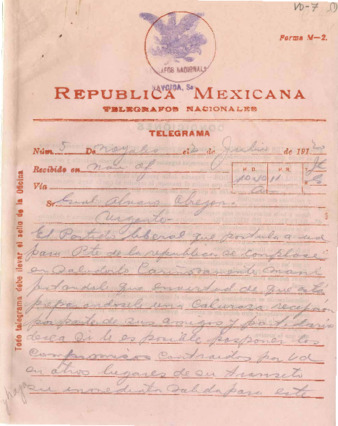 VD-7
Forma M-2.
TELEGRAFOS NACIONALES
NAVOJOA, So
REPUBLICA MEXICANA
TELEGRAFOS NACIONALES
TELEGRAMA
Núm. 5 De Nogales el de Julio de 191
Recibido en Nav
Vía
Sr Gral Alvaro Obregon
Urgente
El Partido liberal que postula a ud
para Pte de la republica se complace
en saludarlo cariñosamente
que en verdad de que está
preparandosele una calurosa recepcion
por parte de sus amigos y partidarios
desea si le es posible posponer los
compromisos contraidos por Ud
en otros lugares de su transito
su inmediata salida para este
Todo telegrama debe llevar el sello de la Oficina